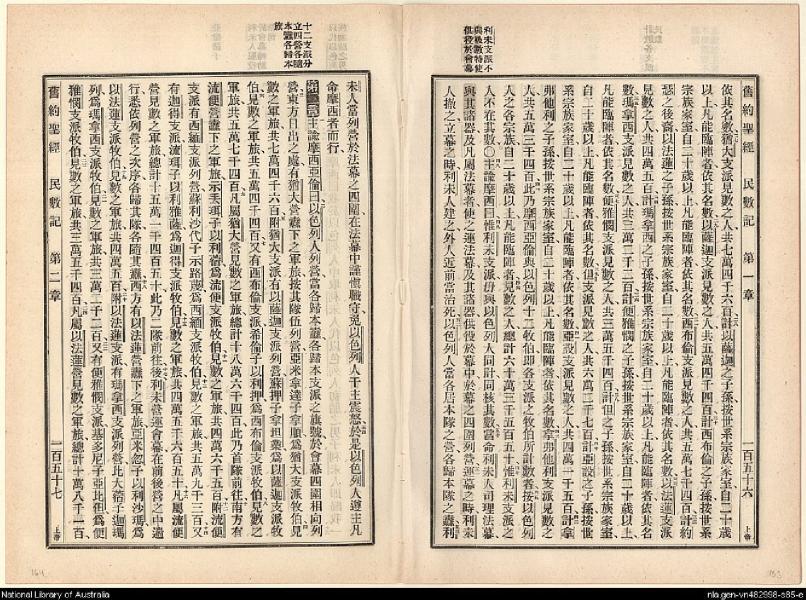 舊約聖經 民數記 第一章 一百五十六 上帝
利未支派不
與衆數特使
供役於會幕
依其名數猶大支派見數之人共七萬四千六百計以薩迦之子孫按世系宗族家室自二十歲
以上凡能臨陣者依其名數以薩迦支派見數之人共五萬四千四百計西布倫之子孫按世系
宗族家室自二十歲以上凡能臨陣者依其名數西布倫支派見數之人共五萬七千四百計約
瑟之後裔以法蓮之子孫按世系宗族家室自二十歲以上凡能臨陣者依其名數以法蓮支派
見數之人共四萬五百計瑪拿西之子孫按世系宗族家室自二十歲以上凡能臨陣者依其名
數瑪拿西支派見數之人共三萬二千二百計便雅憫之子孫按世系宗族家室自二十歲以上
凡能臨陣者依其名數便雅憫支派見數之人共三萬五千四百計但之子孫按世系宗族家室
自二十歲以上凡能臨陣者依其名數但支派見數之人共六萬二千七百計亞設之子孫按世
系宗族家室自二十歲以上凡能臨陣者依其名數亞設支派見數之人共四萬一千五百計拿
弗他利之子孫按世系宗族家室自二十歲以上凡能臨陣者依其名數拿弗他利支派見數之
人共五萬三千四百計此乃摩西亞倫與以色列十二牧伯即各支派之牧伯所計數者按以色列
人之各宗族自二十歲以上凡能臨陣者見數之人總計六十萬三千五百五十惟利未支派之
人不在其數〇主諭摩西曰惟利未支派毋與以色列人同計同核其數當命利未人司理法幕
與其諸器及凡屬法幕者使之運法幕及其諸器供役於幕中於幕之四圍列營運幕之時利未
人撤之立幕之時利未人建之外人近前當治死以色列人當各居本隊之營各歸本隊之纛利
十二支派分
立四營各隨
本纛各歸本
族
未人當列營於法幕之四圍在法幕中謹慎職守免以色列人干主震怒於是以色列人遵主凡
命摩西者而行
第二章 主諭摩西亞倫曰以色列人列營當各歸本纛各歸本支派之旗號於會幕四圍相向列
營東方日出之處有猶大營纛下之軍旅按其隊伍列營亞米拿達子拿順爲猶大支派牧伯見
數之軍旅共七萬四千六百附猶大支派有以薩迦支派列營蘇押子拿坦業爲以薩迦支派牧
伯見數之軍旅共五萬四千四百又有西布倫支派希倫子以利押爲西布倫支派牧伯見數之
軍旅共五萬七千四百凡屬猶大營見數之軍旅總計十八萬六千四百此乃首隊前往南方有
流便營纛下之軍旅示丟珥子以利蓿爲流便支派牧伯見數之軍旅共四萬六千五百附流便
支派有西緬支派列營蘇利沙代子示路蔑爲西緬支派牧伯見數之軍旅共五萬九千三百又
有迦得支派流珥子以利雅薩爲迦得支派牧伯見數之軍旅共四萬五千六百五十凡屬流便
營見數之軍旅總計十五萬一千四百五十此乃二隊前往後利未營運會幕在前後營之中遄
行悉依列營之次序各歸其隊各隨其纛西方有以法蓮營纛下之軍旅亞米忽子以利沙瑪爲
以法蓮支派牧伯見數之軍旅共四萬五百附以法蓮支派有瑪拿西支派列營比大蓿子迦瑪
列爲瑪拿西支派牧伯見數之軍旅共三萬二千二百又有便雅憫支派基多尼子亞比但爲便
雅憫支派牧伯見數之軍旅共三萬五千四百凡屬以法蓮營見數之軍旅總計十萬八千一百
舊約聖經 民數記 第二章 一百五十七 上帝
National Library of Australia
nla.gen-vn482998-s85-e